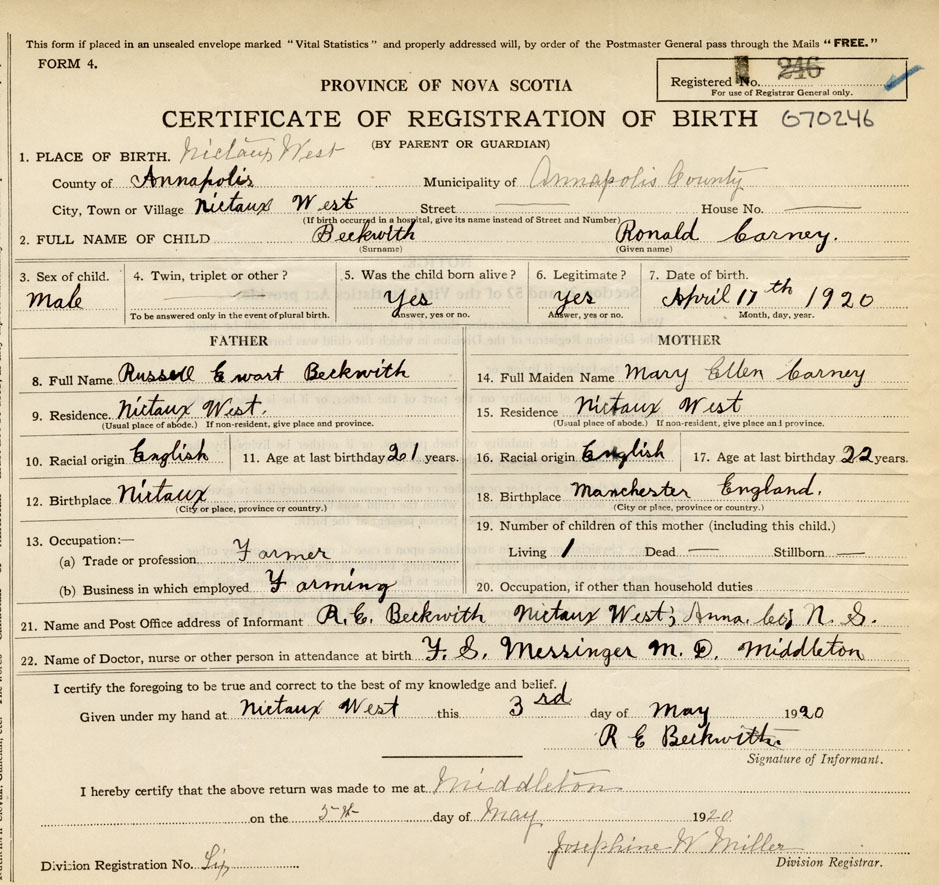 This form if placed in an unsealed envelope marked "Vital Statistics" and properly addressed will, by order of the Postmaster General pass through the Mails "FREE."
FORM 4.
Registered No. 246
For use of Registrar General only.
PROVINCE OF NOVA SCOTIA
CERTIFICATE OF REGISTRATION OF BIRTH 670246
(BY PARENT OR GUARDIAN)
1. PLACE OF BIRTH. Nictaux West
County of Annapolis Municipality of Annapolis County
City, Town or Village Nictaux West Street House No.
(If birth occurred in a hospital, give its name instead of Street and Number)
2. FULL NAME OF CHILD Beckwith Ronald Carney.
(Surname) (Given name)
3. Sex of child. 4. Twin, triplet or other? 5. Was the child born alive? 6. Legitimate? 7. Date of birth.
Male Yes Yes April 17th 1920
To be answered only in the event of plural birth. Answer, yes or no. Answer, yes or no. Month, day, year.
FATHER
8. Full Name Russell Ewart Beckwith
9. Residence. Nictaux West.
(Usual place of abode.) If non-resident, give place and province.
10. Racial origin English 11. Age at last birthday 21 years.
12. Birthplace Nictaux
(City or place, province or country.)
13. Occupation:—
(a) Trade or profession Farmer
(b) Business in which employed Farming
MOTHER
14. Full Maiden Name Mary Ellen Carney
15. Residence Nictaux West
(Usual place of abode.) If non-resident, give place and province.
16. Racial origin English 17. Age at last birthday 22 years.
18. Birthplace Manchester England.
(City or place, province or country.)
19. Number of children of this mother (including this child.)
Living 1 Dead — Stillborn —
20. Occupation, if other than household duties
21. Name and Post Office address of Informant R. E. Beckwith Nictaux West, Anna. Co, N. S.
22. Name of Doctor, nurse or other person in attendance at birth F. S. Messinger M. D. Middleton
I certify the foregoing to be true and correct to the best of my knowledge and belief.
Given under my hand at Nictaux West this 3rd day of May 1920
R E Beckwith.
Signature of Informant.
I hereby certify that the above return was made to me at Middleton
on the 5th day of May 1920
Josephine W Miller
Division Registration No. Six Division Registrar.